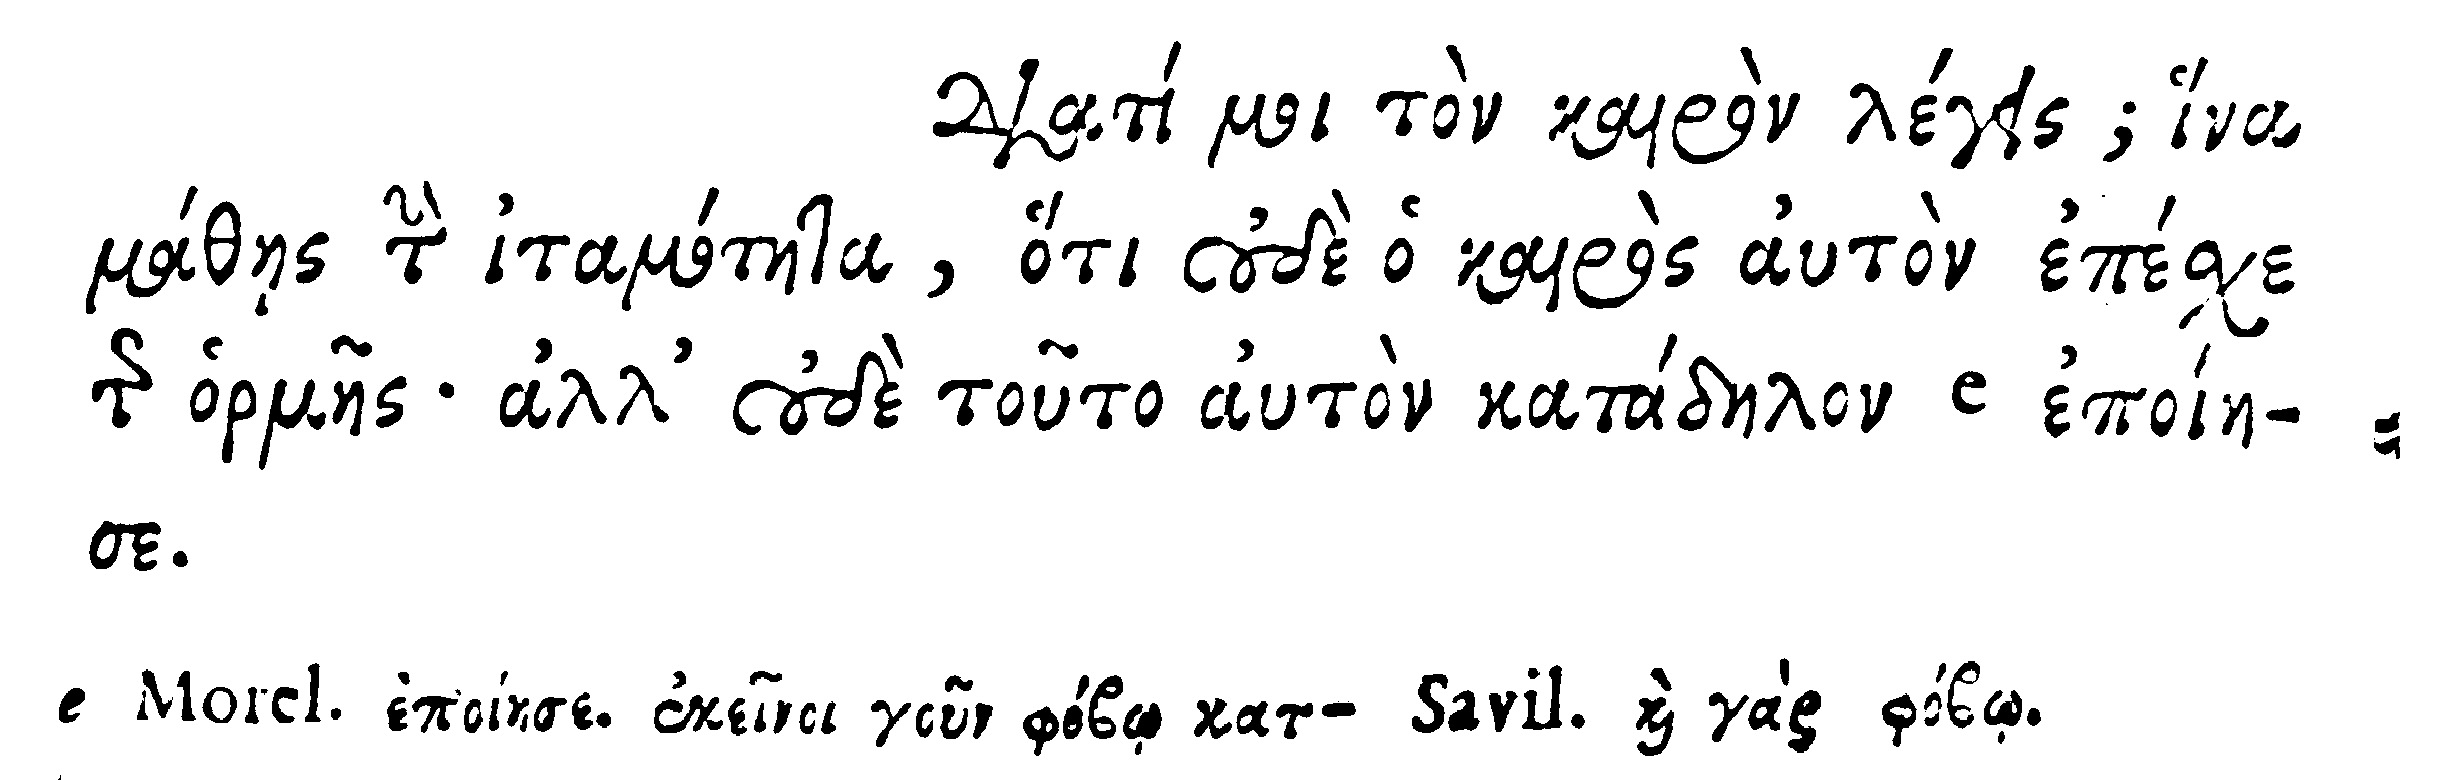 Διατί μοι τὸν καιρὸν λέγεις; ἵνα
μάθῃς τὴν ἰταμότητα, ὅτι οὐδὲ ὁ καιρὸς αὐτὸν ἐπέσχε
τῆς ὁρμῆς· ἀλλ᾽ οὐδὲ τοῦτο αὐτὸν κατάδηλον e ἐποίη-
σε.
e Morel. ἐποίησε. ἐκεῖνοι γοῦν φόβῳ κατ- Savil. καὶ γὰρ φόβῳ.